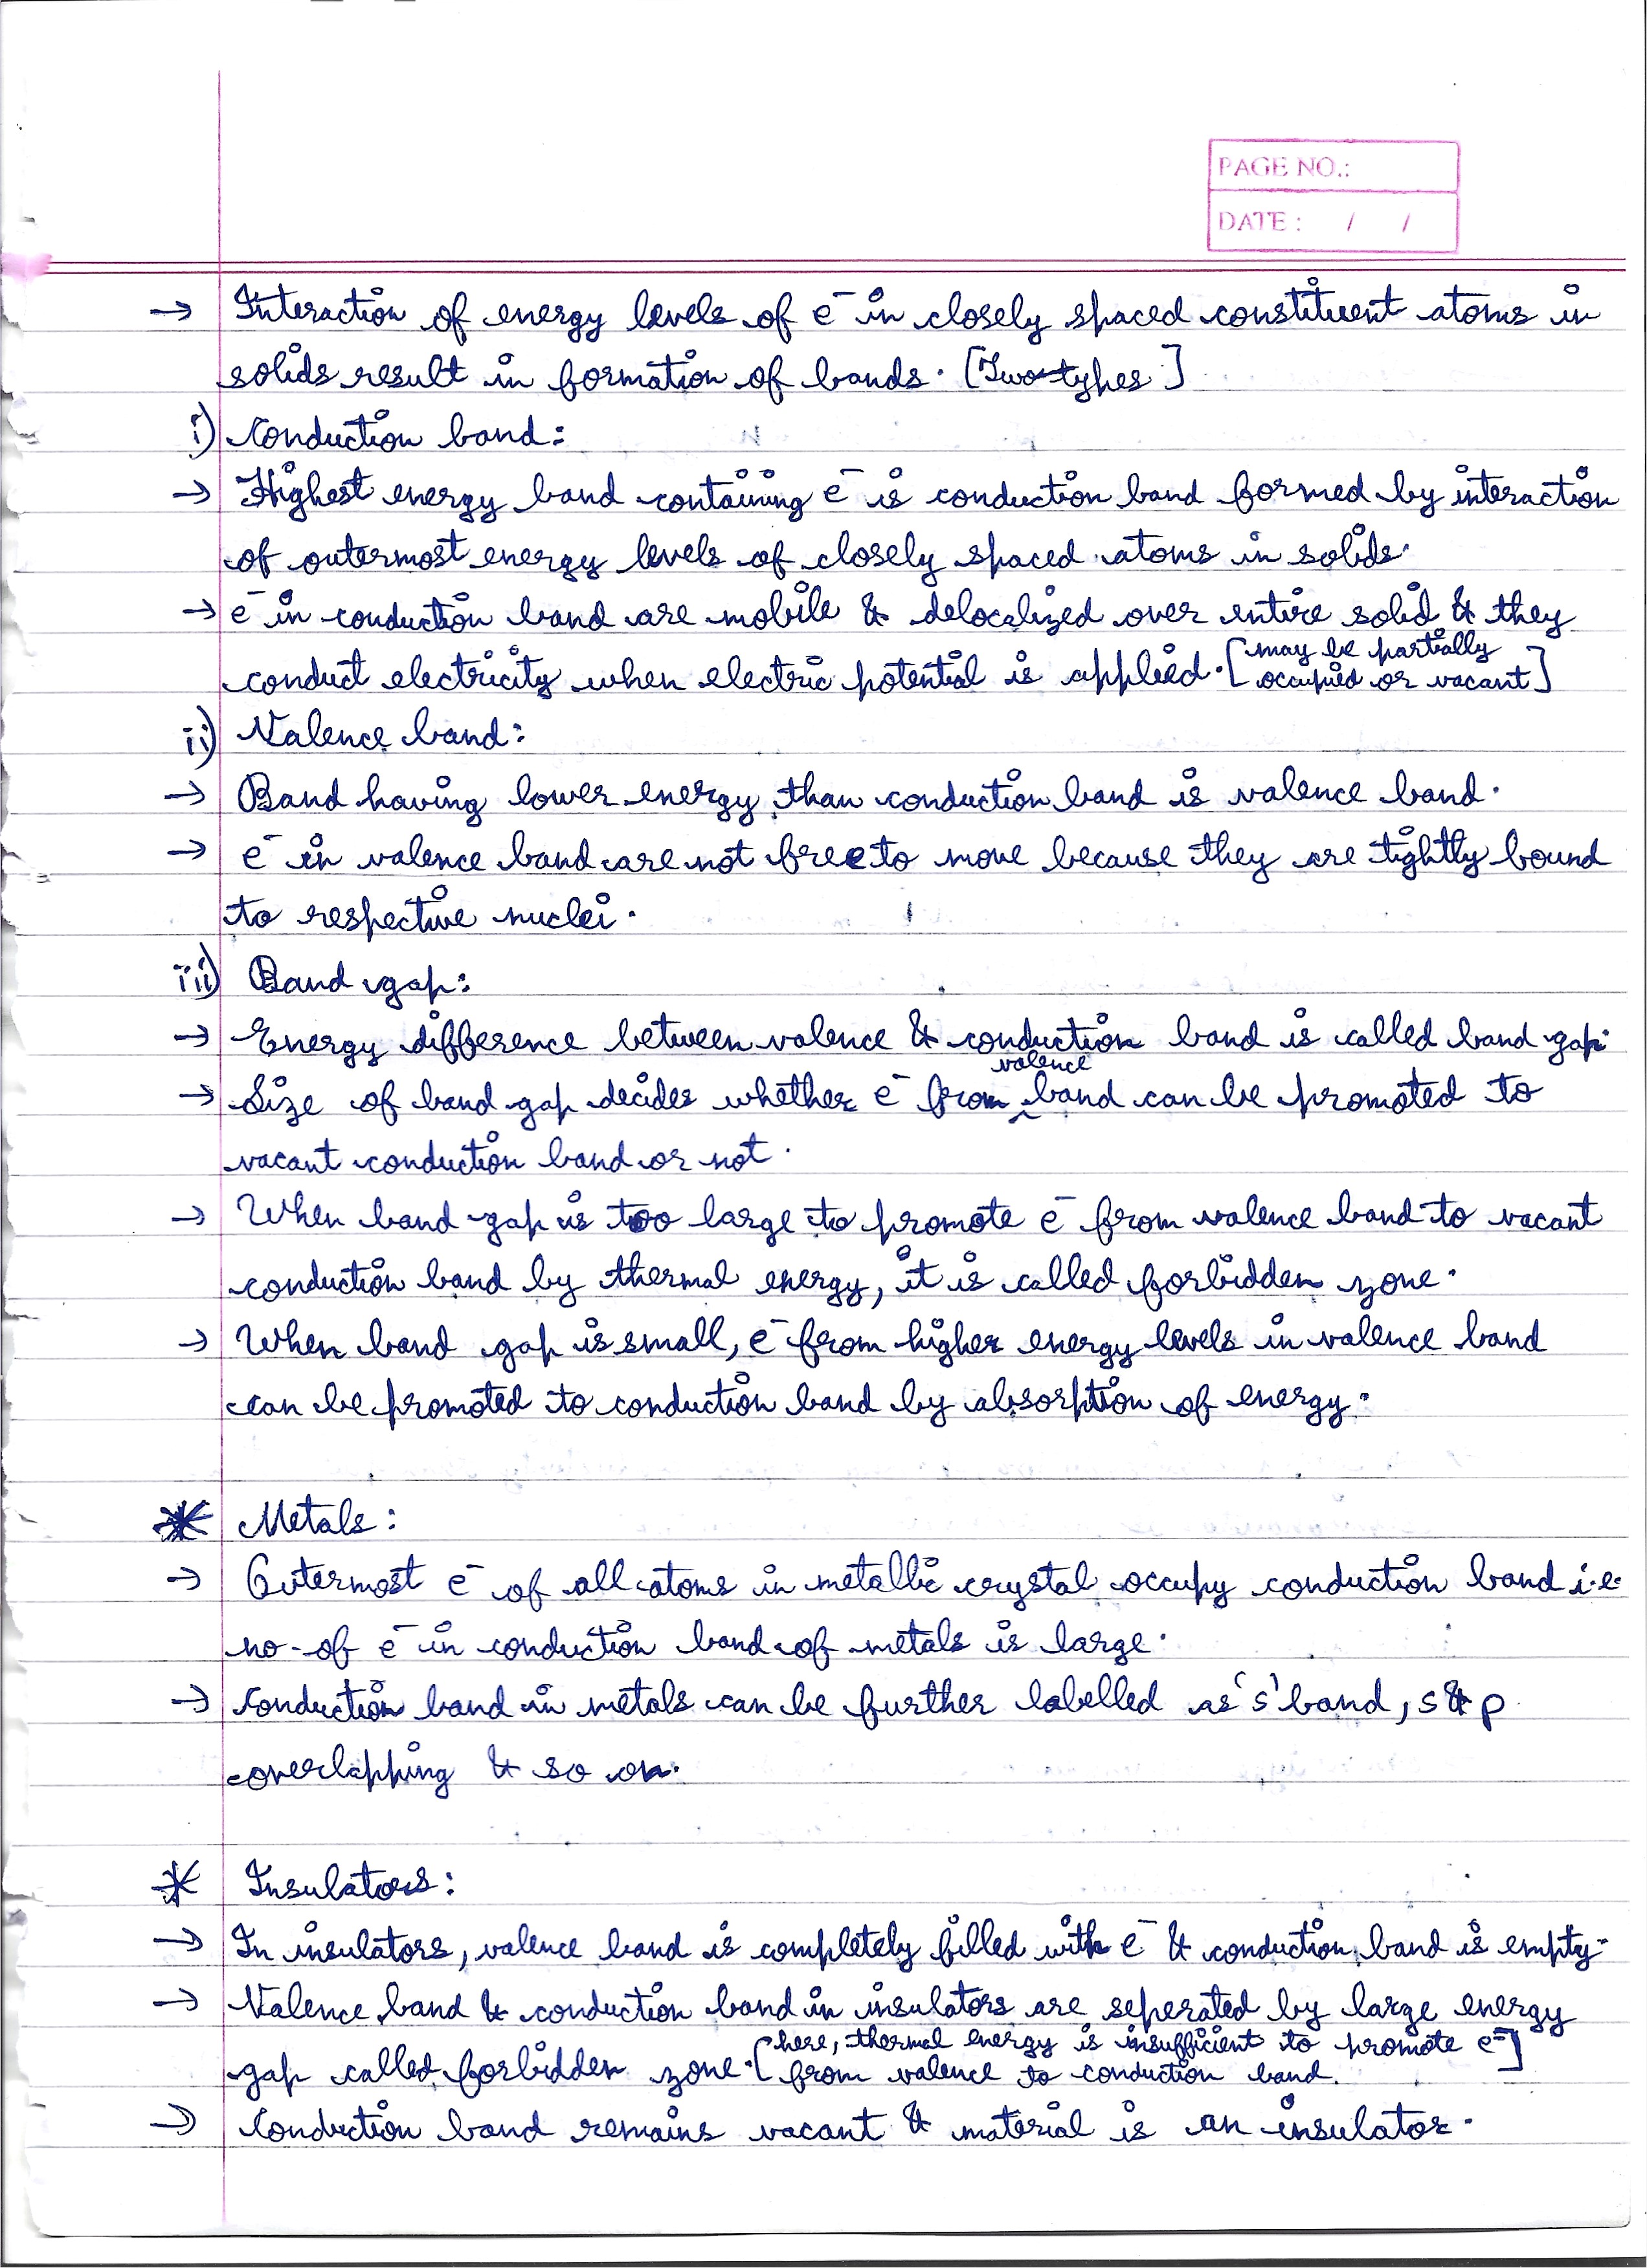 PAGE NO.:
DATE : / /
→ Interaction of energy levels of e⁻ in closely spaced constituent atoms in
solids result in formation of bands. [Two types]
i) Conduction band:
→ Highest energy band containing e⁻ is conduction band formed by interaction
of outermost energy levels of closely spaced atoms in solids.
→ e⁻ in conduction band are mobile & delocalized over entire solid & they
conduct electricity when electric potential is applied. [may be partially
occupied or vacant]
ii) Valence band:
→ Band having lower energy than conduction band is valence band.
→ e⁻ in valence band are not free to move because they are tightly bound
to respective nuclei.
iii) Band gap:
→ Energy difference between valence & conduction band is called band gap.
→ Size of band gap decides whether e⁻ from valence band can be promoted to
vacant conduction band or not.
→ When band gap is too large to promote e⁻ from valence band to vacant
conduction band by thermal energy, it is called forbidden zone.
→ When band gap is small, e⁻ from higher energy levels in valence band
can be promoted to conduction band by absorption of energy.
* Metals:
→ Outermost e⁻ of all atoms in metallic crystal occupy conduction band i.e.
no. of e⁻ in conduction band of metals is large.
→ Conduction band in metals can be further labelled as 's' band, s & p
overlapping & so on.
* Insulators:
→ In insulators, valence band is completely filled with e⁻ & conduction band is empty.
→ Valence band & conduction band in insulators are seperated by large energy
gap called forbidden zone. [here, thermal energy is insufficient to promote e⁻
from valence to conduction band.]
→ Conduction band remains vacant & material is an insulator.